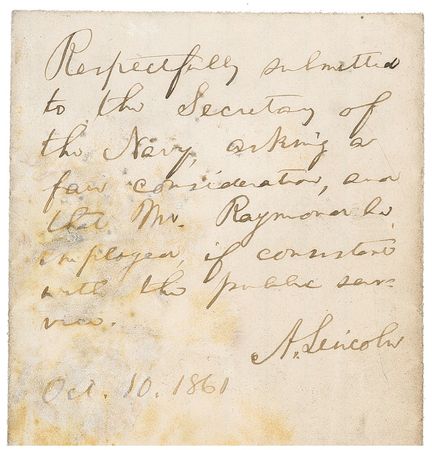 Respectfully submitted
to the Secretary of
the Navy, asking a
fair consideration, and
that Mr. Raymond be
employed, if consistent
with the public ser-
vice.
A. Lincoln
Oct. 10. 1861